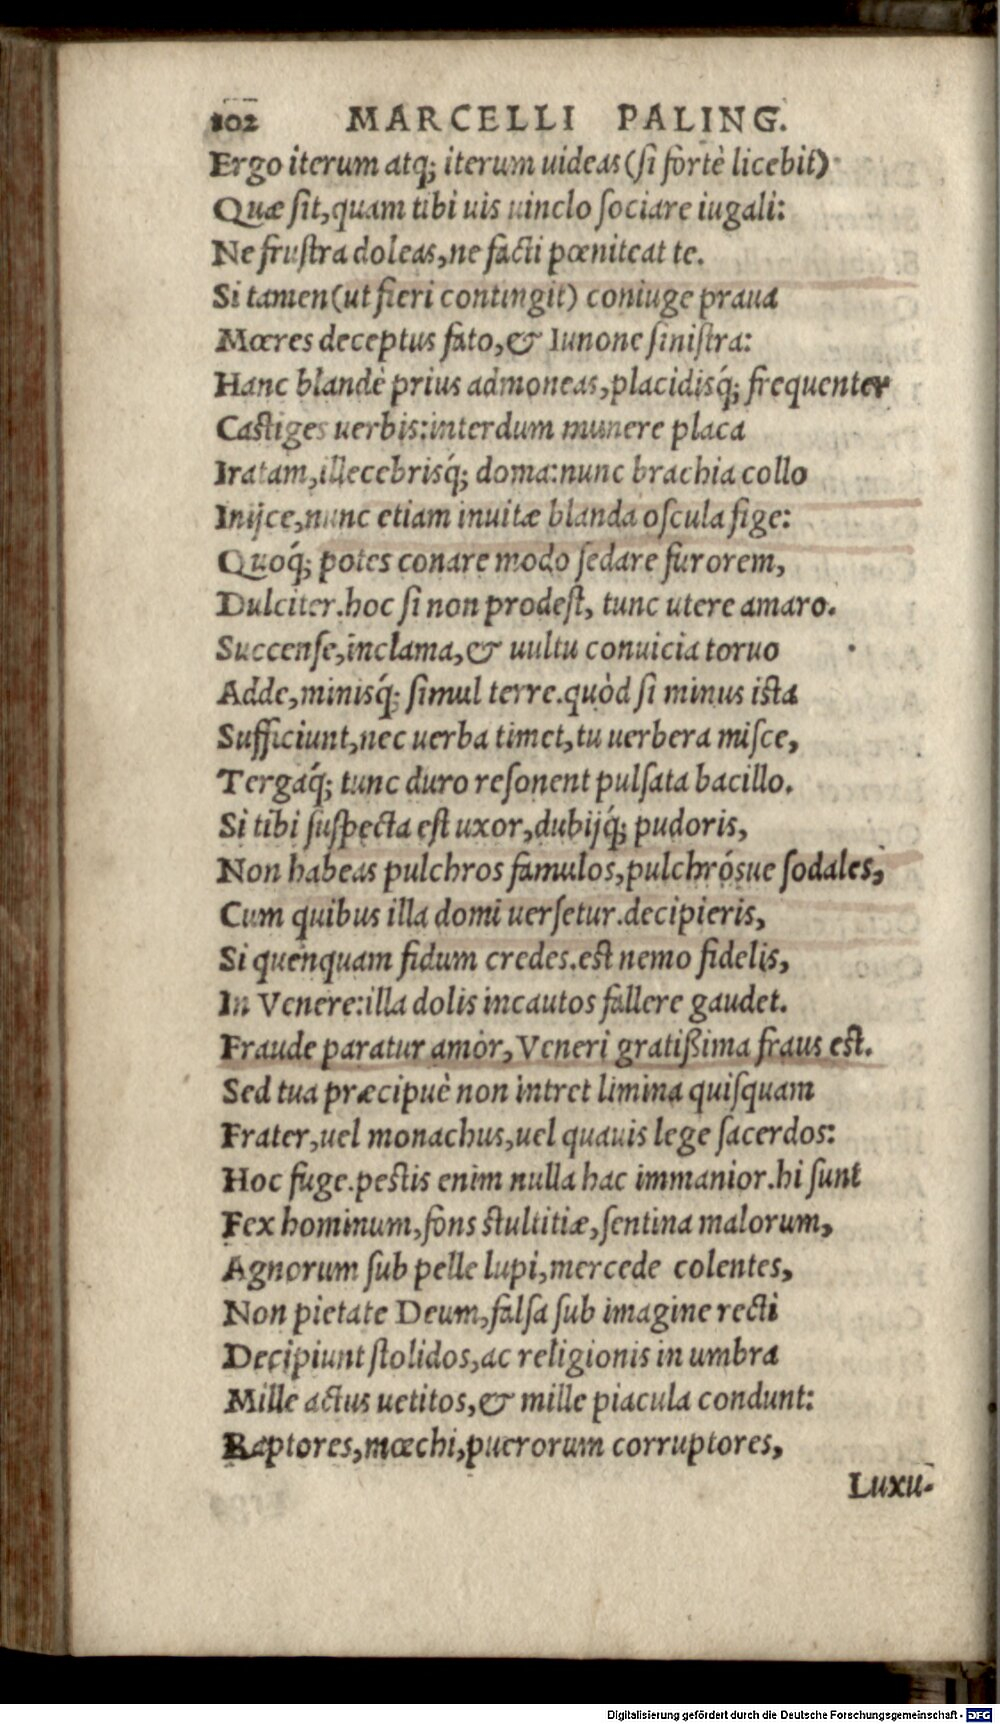 102 MARCELLI PALING.
Ergo iterum atq; iterum uideas (si fortè licebit)
Quæ sit, quam tibi uis uinclo sociare iugali:
Ne frustra doleas, ne facti pœniteat te.
Si tamen (ut fieri contingit) coniuge praua
Mœres deceptus fato, & Iunone sinistra:
Hanc blandè prius admoneas, placidisq́; frequenter
Castiges uerbis: interdum munere placa
Iratam, illecebrisq́; doma: nunc brachia collo
Inijce, nunc etiam inuitæ blanda oscula fige:
Quoq́; potes conare modo sedare furorem,
Dulciter. hoc si non prodest, tunc utere amaro.
Succense, inclama, & uultu conuicia toruo
Adde, minisq́; simul terre. quòd si minus ista
Sufficiunt, nec uerba timet, tu uerbera misce,
Tergaq́; tunc duro resonent pulsata bacillo.
Si tibi suspecta est uxor, dubijq́; pudoris,
Non habeas pulchros famulos, pulchrósue sodales,
Cum quibus illa domi uersetur. decipieris,
Si quenquam fidum credes. est nemo fidelis,
In Venere: illa dolis incautos fallere gaudet.
Fraude paratur amor, Veneri gratißima fraus est.
Sed tua præcipuè non intret limina quisquam
Frater, uel monachus, uel quauis lege sacerdos:
Hoc fuge. pestis enim nulla hac immanior. hi sunt
Fex hominum, fons stultitiæ, sentina malorum,
Agnorum sub pelle lupi, mercede colentes,
Non pietate Deum, falsa sub imagine recti
Decipiunt stolidos, ac religionis in umbra
Mille actus uetitos, & mille piacula condunt:
Raptores, mœchi, puerorum corruptores,
Luxu-
Digitalisierung gefördert durch die Deutsche Forschungsgemeinschaft - DFG